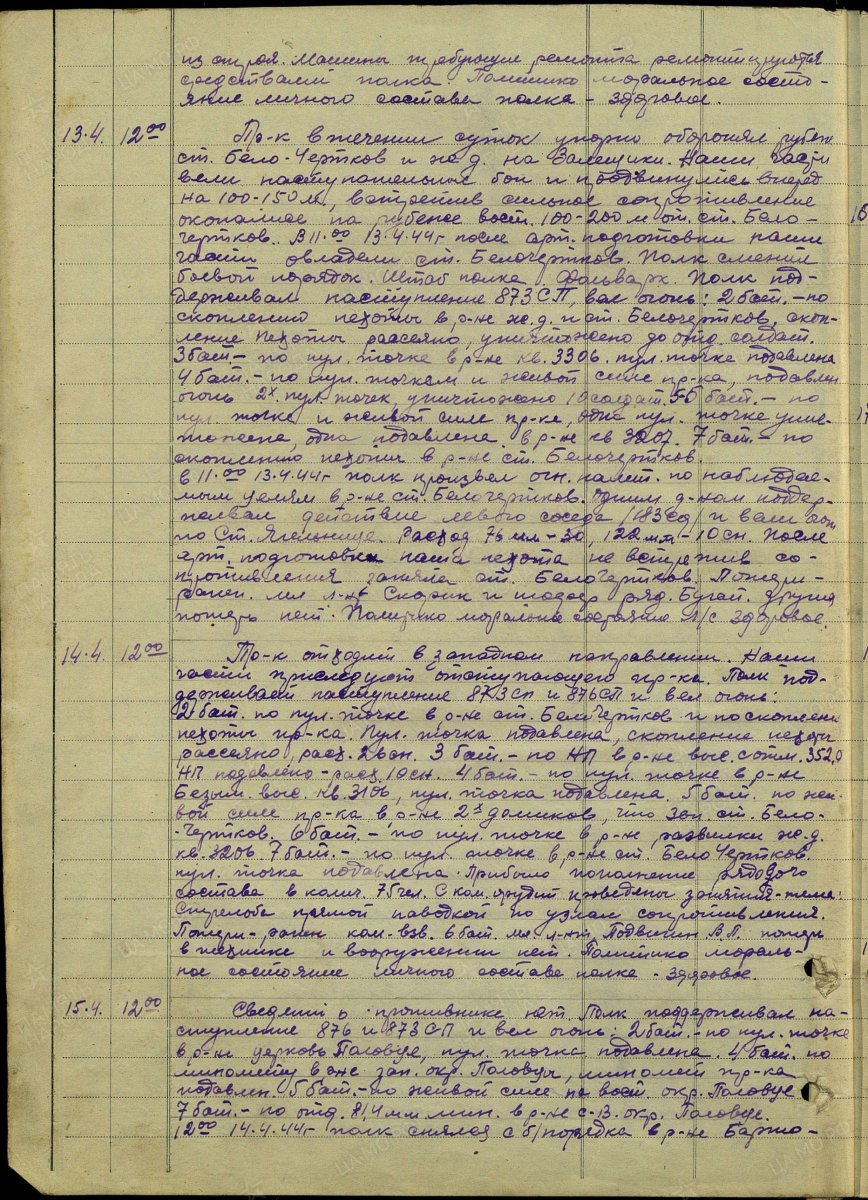 из строя. Машины требующие ремонта ремонтируются
средствами полка. Политико моральное состо-
яние личного состава полка – здоровое.
13.4. 12 00 Пр-к в течении суток упорно оборонял рубеж
ст. Бело-Чертков и ж.д. на Залещики. Наши части
вели наступательные бои и продвинулись вперед
на 100-150 м, встретив сильное сопротивление
на рубеже вост. 100-200 м от. ст. Бело-
чертков. В 11.00 13.4.44г после арт. подготовки наши
части овладели ст. Белочертков. Полк сменил
боевой порядок. Штаб полка Фольварк. Полк под-
держивал наступление 873 СП, вел огонь: 2 бат. – по
скоплению пехоты в р-не ж.д. и ст. Белочертков, скоп-
ление пехоты рассеяно, уничтожено до отд. солдат.
3 бат. – по пул. точке в р-не кв. 3306. пул. точка подавлена
4 бат. – по пул. точкам и живой силе пр-ка, подавлен
огонь 2х пул. точек, уничтожено 10 солдат. 5-6 бат. – по
пул. точке и живой силе пр-ка, одна пул. точка унич-
тожена, одна подавлена. в р-не кв 3207. 7 бат. – по
скоплению пехоты в р-не ст. Белочертков.
в 11.00 13.4.44г полк произвел огн. налет. по наблюдае-
мым целям в р-не ст. Белочертков. Одним д-ном поддер-
живал действие левого соседа /183 сд/ и вел огонь
по Ст. Ягельница. Расход 76 мм – 30, 122 мм – 10 сн. После
арт. подготовки наша пехота не встретив со-
противления заняла ст. БелоЧертков. Потери –
ранен. мл л-нт Скорик и шофер ряд. Бугай. других
потерь нет. Политико моральное состояние л/с здоровое.
14.4. 12 00 Пр-к отходит в западном направлении. Наши
части преследуют отступающего пр-ка. Полк под-
держивает наступление 873 сп и 876 СП и вел огонь:
2 бат. по пул. точке в р-не ст. БелоЧертков и по скоплению
пехоты пр-ка. Пул. точка подавлена, скопление пехоты
рассеяно, расх. 2 сн. 3 бат. – по НП в р-не выс. с отм. 352,0
НП подавлено – расх. 10 сн. 4 бат. – по пул. точке в р-не
Безым. выс. кв. 3106, пул. точка подавлена. 5 бат. по жи-
вой силе пр-ка в р-не 2х домиков, что зап. ст. Бело-
-Чертков. 6 бат. – по пул. точке в р-не, развилки ж.д.
кв. 3206. 7 бат. – по пул. точке в р-не ст. БелоЧертков.
пул. точка подавлена. Прибыло пополнение рядового
состава в колич. 75 чел. С ком. орудий проведены занятия – тема:
Стрельба прямой наводкой по узлам сопротивления.
Потери – ранен ком. взв. 6 бат. мл. л-нт. В.П. потерь
в технике и вооружении нет. Политико мораль-
ное состояние личного состава полка – здоровое.
15.4. 12 00 Сведений о противнике нет. Полк поддерживал на-
ступление 876 и 873 СП и вел огонь: 2 бат. – по пул. точке
в р-не церковь Паловце, пул. точка подавлена. 4 бат. по
миномету в р-не зап. окр. Паловце, миномет пр-ка
подавлен. 5 бат. – по живой силе на вост. окр. Паловце
7 бат. – по отд. 81,4 мм мин. в р-не с-в. окр. Паловце.
12 00 14.4.44г полк снялся с б/порядка в р-не